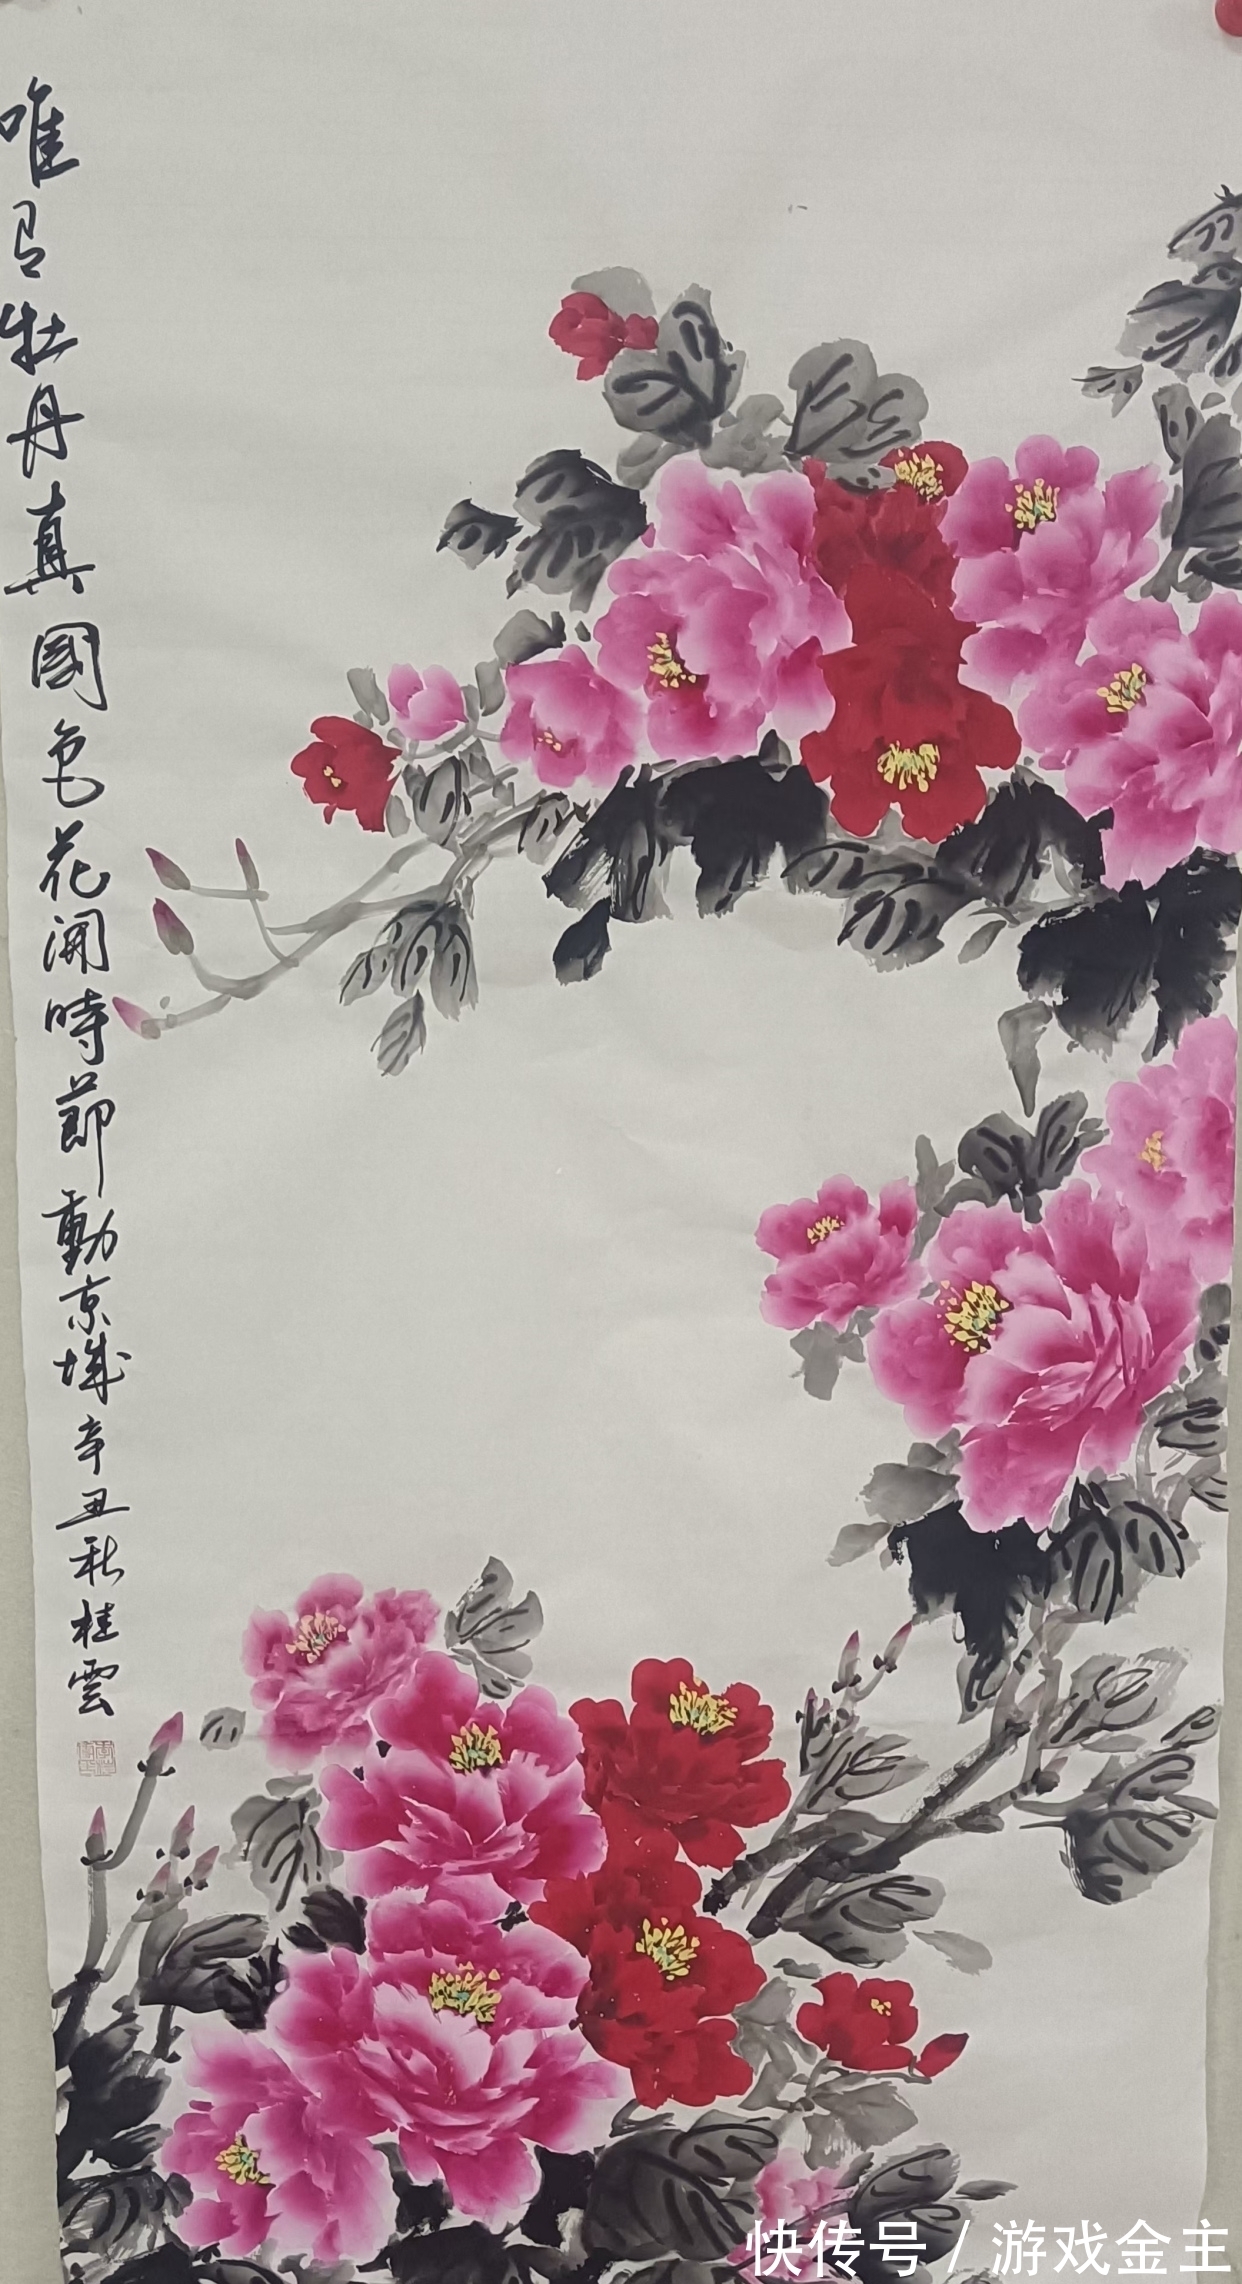 唯有牡丹真國色花開時節動京城辛丑秋桂雲
快传号 / 游戏金主